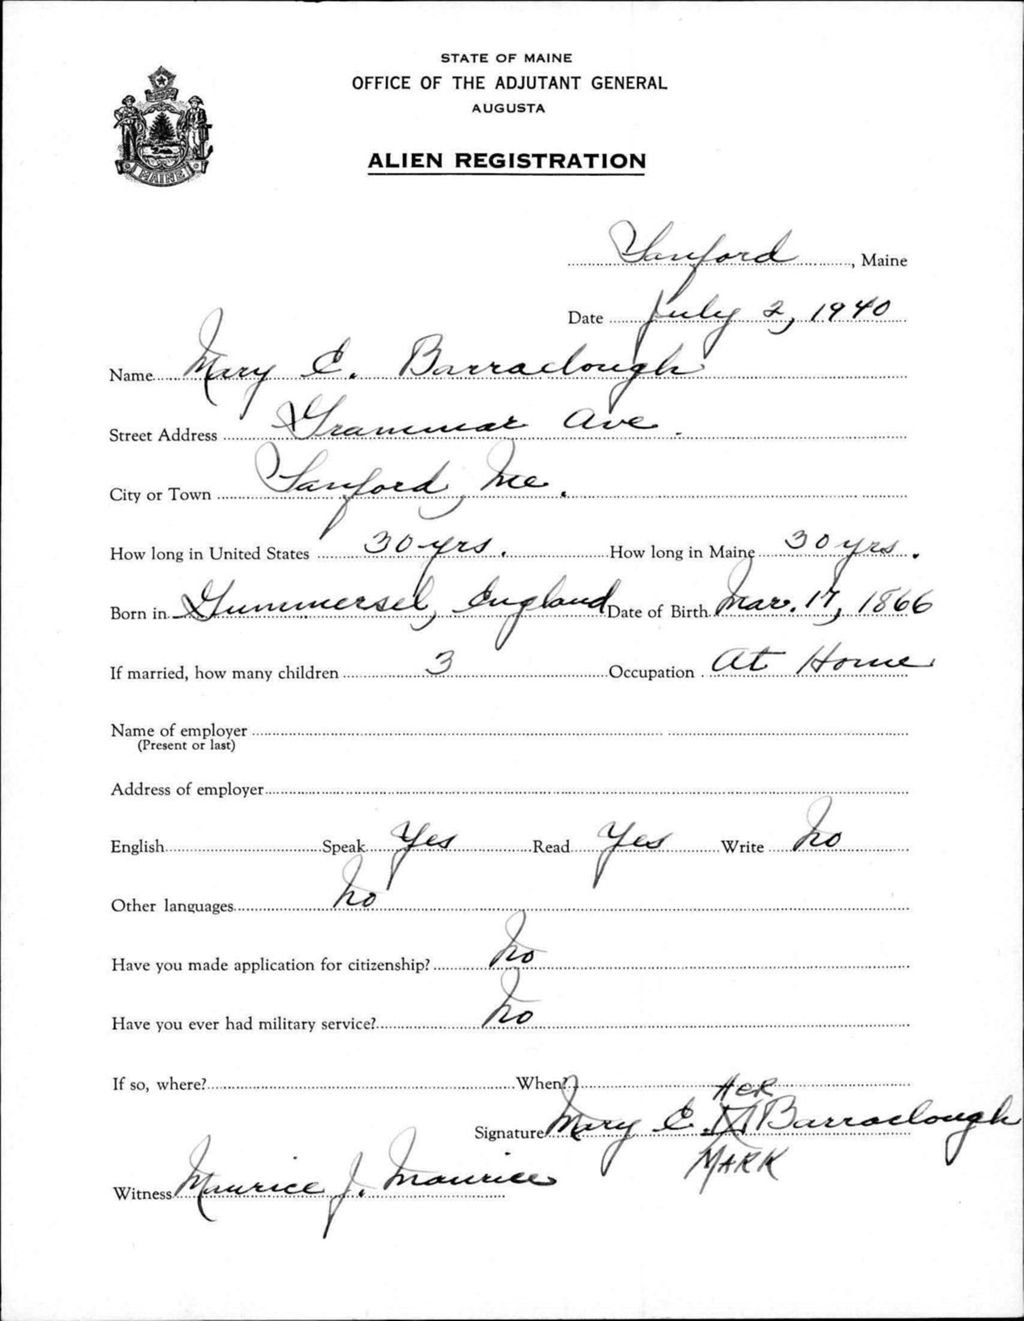 STATE OF MAINE
OFFICE OF THE ADJUTANT GENERAL
AUGUSTA
ALIEN REGISTRATION
MAINE
Sanford, Maine
Date July 2, 1940
Name Mary E. Barraclough
Street Address Grammar Ave.
City or Town Sanford, Me.
How long in United States 30 yrs. How long in Maine 30 yrs.
Born in Gummersel, England Date of Birth Mar. 17, 1866
If married, how many children 3 Occupation At Home
Name of employer
(Present or last)
Address of employer
English Speak Yes Read Yes Write No
Other languages No
Have you made application for citizenship? No
Have you ever had military service? No
If so, where? When?
HER
Signature Mary E. X Barraclough
MARK
Witness Maurice J. Maurice